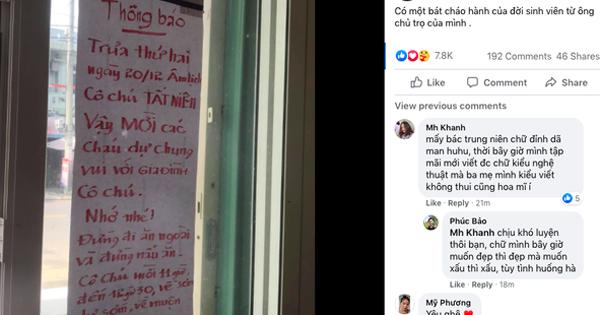 Thông báo
Trưa thứ hai
ngày 20/12 Âm lịch
Cô chú TẤT NIÊN
Vậy MỜI các
Cháu dự chung
vui với GIA ĐÌNH
Cô chú.
Nhớ nhé!
Đừng đi ăn ngoài
và đừng nấu ăn.
Cô Chú mời 11 giờ,
đến 18giờ30, về sớm
kẻ sớm, về muộn
Có một bát cháo hành của đời sinh viên từ ông
chủ trọ của mình .
7.8K
192 Comments 46 Shares
Like
Comment
Share
View previous comments
Mh Khanh
mấy bác trung niên chữ đỉnh dã
man huhu, thời bây giờ mình tập
mãi mới viết đc chữ kiểu nghệ
thuật mà ba mẹ mình kiểu viết
không thui cũng hoa mĩ í
5
Like · Reply · 21m
Phúc Bảo
Mh Khanh chịu khó luyện
thôi bạn, chữ mình bây giờ
muốn đẹp thì đẹp mà muốn
xấu thì xấu, tùy tình huống hà
Like · Reply · 18m
Mỹ Phương
Yêu ghê